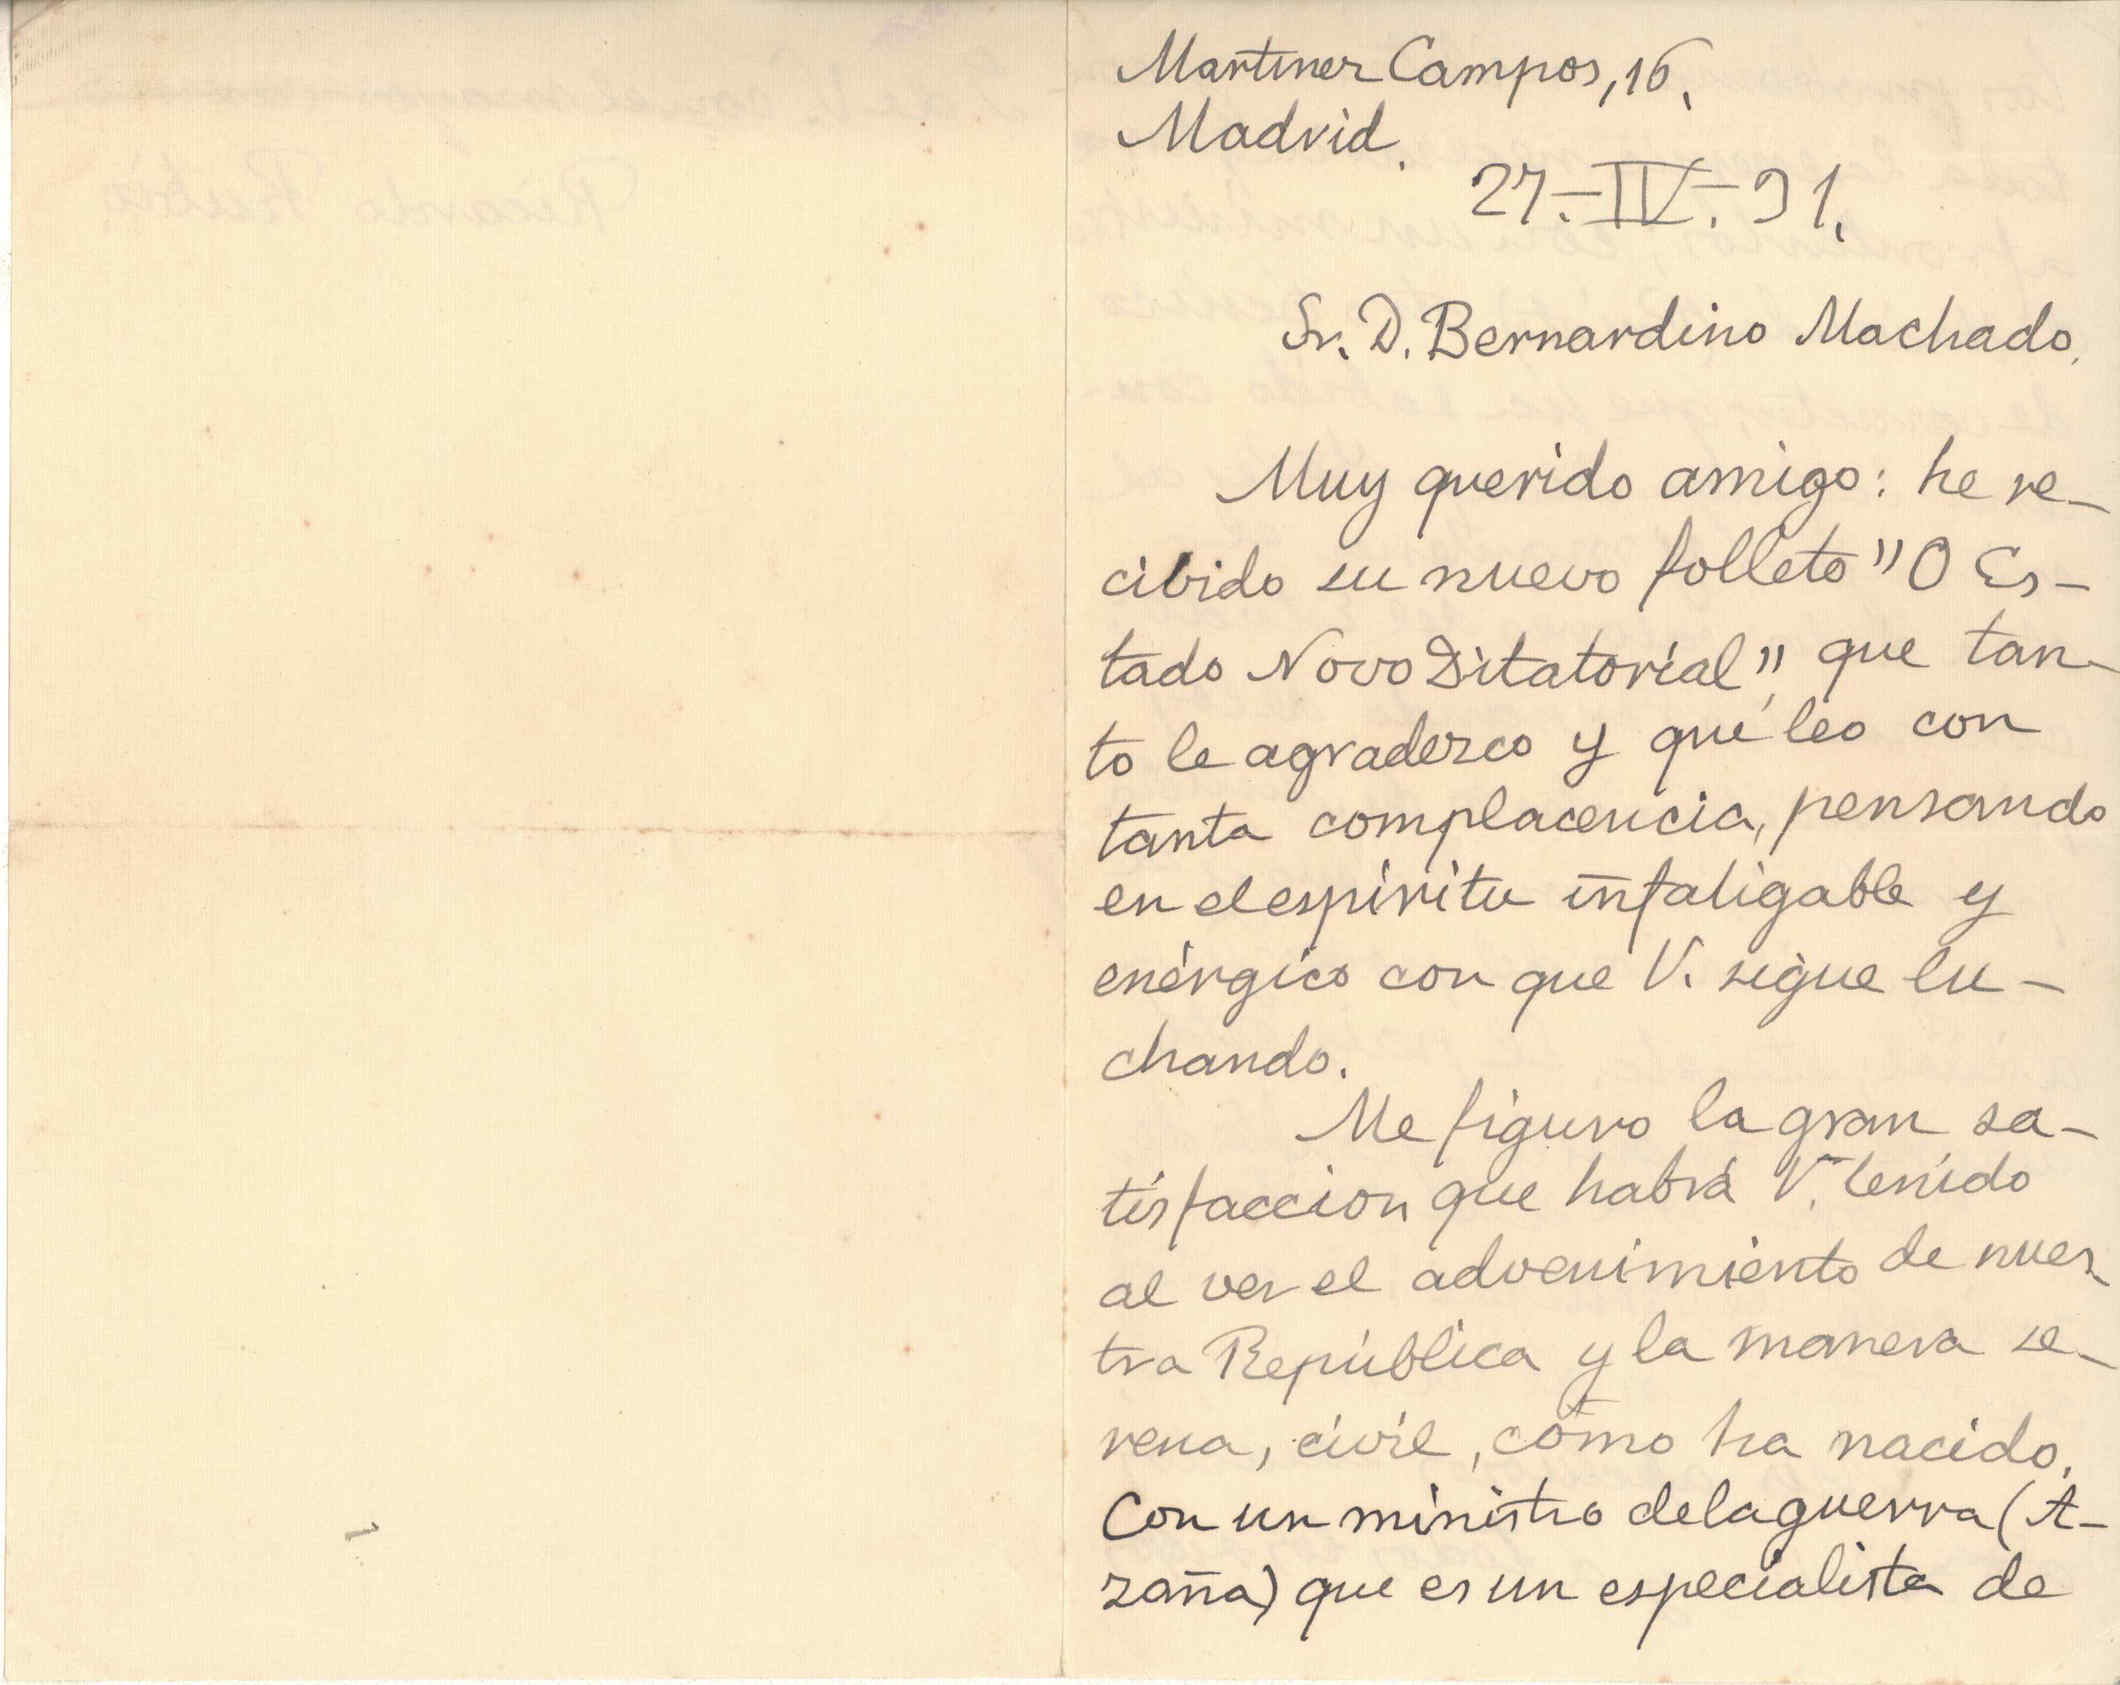 Martinez Campos, 16.
Madrid.
27.-IV.-31.
Sr. D. Bernardino Machado.
Muy querido amigo: he re-
cibido su nuevo folleto "O Es-
tado Novo Ditatorial", que tan-
to le agradezco y que leo con
tanta complacencia, pensando
en el espiritu infatigable y
enérgico con que V. sigue lu-
chando.
Me figuro la gran sa-
tisfaccion que habrá V. tenido
al ver el advenimiento de nues-
tra República y la manera se-
rena, civil, como ha nacido.
Con un ministro de la guerra (A-
zaña) que es un especialista de
Ricardo Rubio